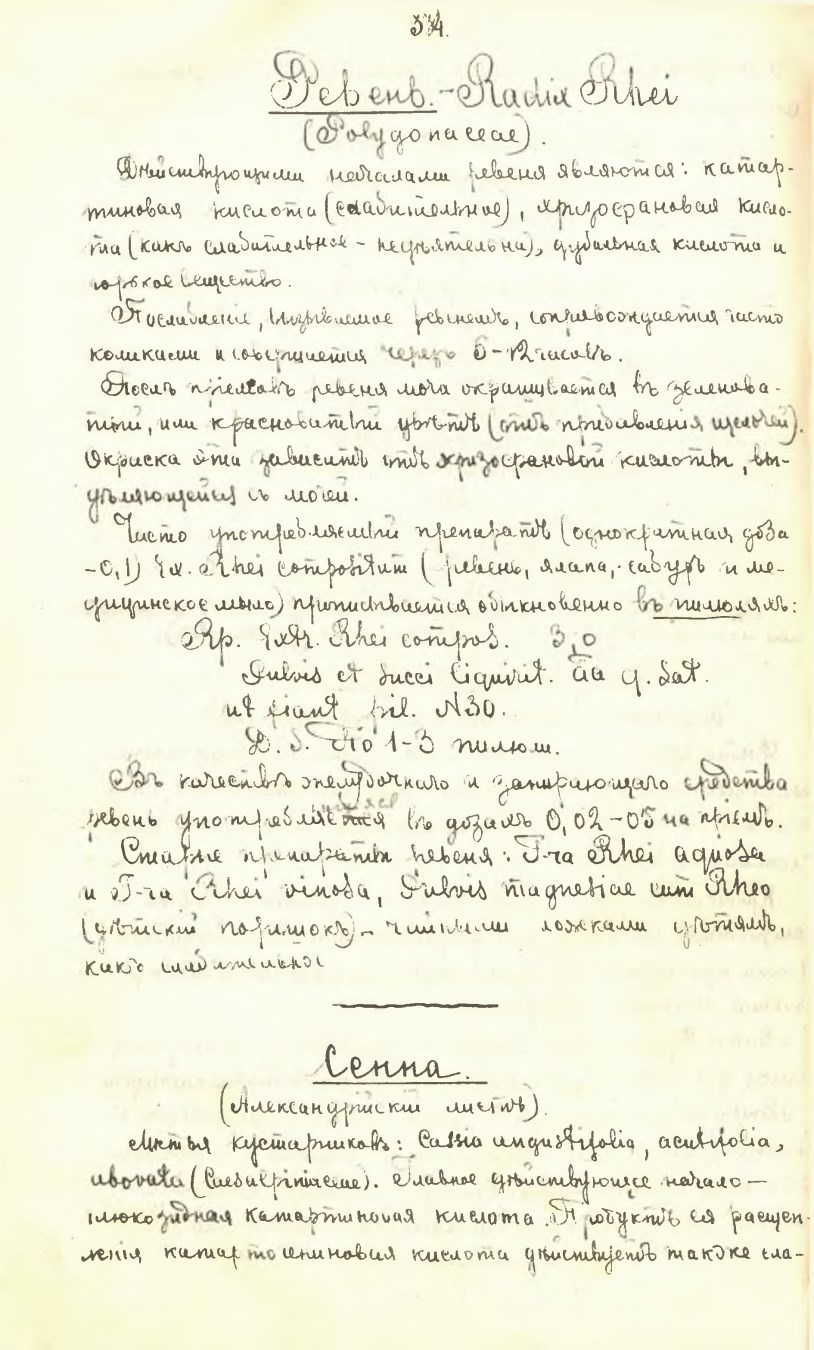 534.
Ревень. - Radix Rhei
(Polygonaceae).
Дѣйствующими началами ревеня являются: катар-
тиновая кислота (слабительное), хризофановая кисло-
та (какъ слабительное - недѣятельна), дубильная кислота и
горькое вещество.
Послабленіе, вызываемое ревенемъ, сопровождается часто
коликами и совершается черезъ 5-12 часовъ.
Послѣ пріемовъ ревеня моча окрашивается въ зеленова-
тый, или красноватый цвѣтъ (отъ прибавленія щелочей).
Окраска эта зависитъ отъ хризофановой кислоты, вы-
дѣляющейся съ мочей.
Часто употребляемый препаратъ (однократная доза
-0,1) Ex. Rhei compositum (ревень, ялапа, сабуръ и ме-
дицинское мыло) прописывается обыкновенно въ пилюляхъ:
Rp. Extr. Rhei compos. 3,0
Pulvis et succi liquirit. āā q. sat.
ut fiant pil. N30.
D. S. По 1-3 пилюли.
Въ качествѣ желудочнаго и запирающаго средства
ревень употребляется въ дозахъ 0,02-05 на пріемъ.
Старые препараты ревеня: T-ra Rhei aquosa
и T-ra Rhei vinosa, Pulvis magnesiae cum Rheo
(дѣтскій порошокъ) - чайными ложками дѣтямъ,
какъ слабительное
Сенна.
(Александрійскій листъ).
Листья кустарниковъ: Cassia angustifolia, acutifolia,
obovata (Caesalpiniaceae). Главное дѣйствующее начало —
глюкозидная катартиновая кислота. Продуктъ ея расщеп-
ленія катартогениновая кислота дѣйствуетъ также сла-